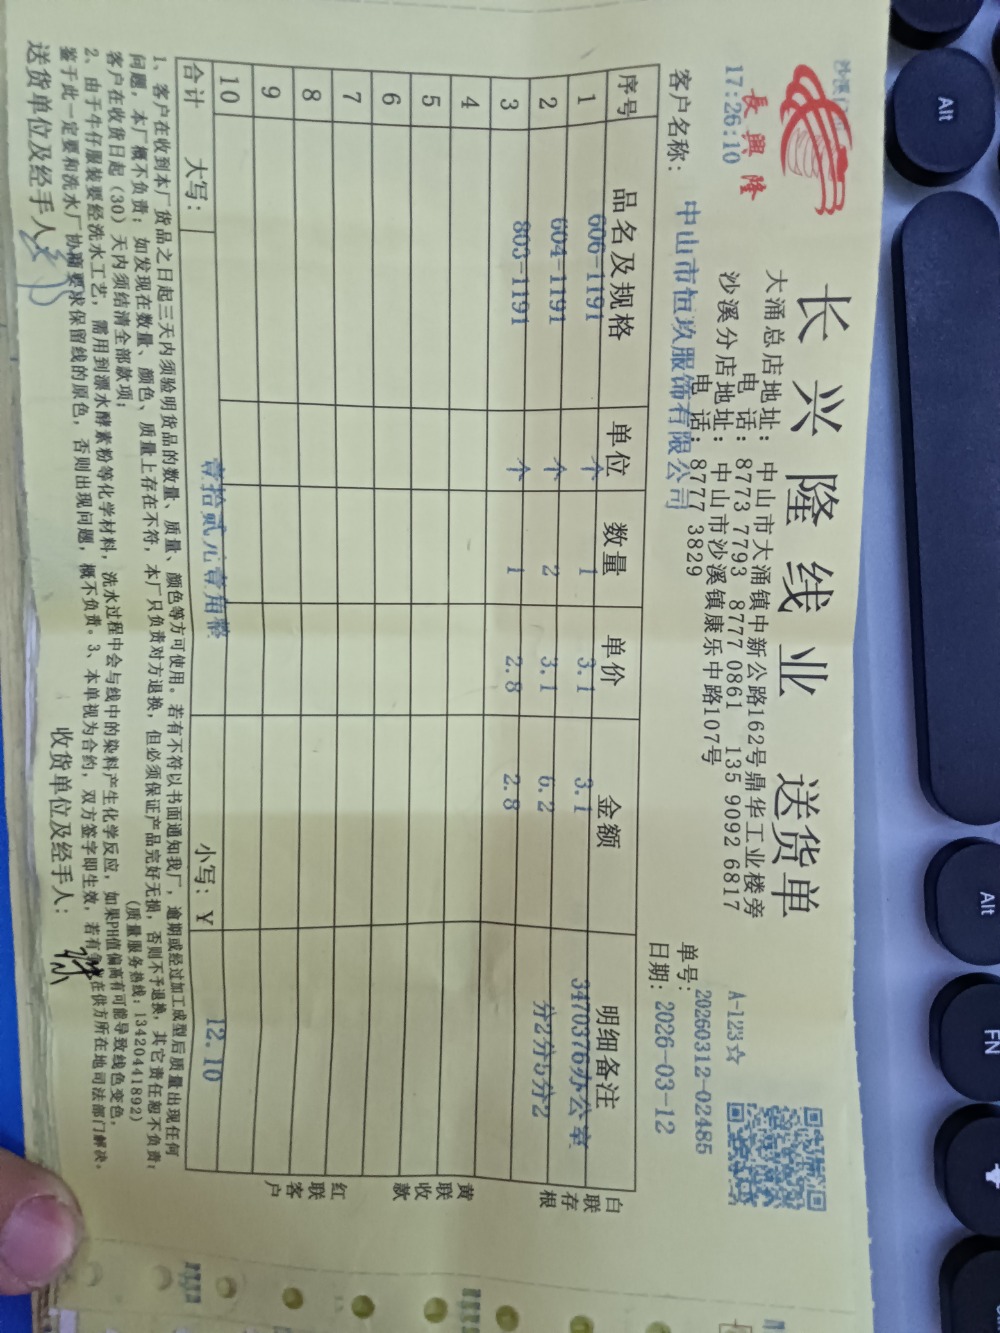 長興隆
17:26:10
长兴隆线业 送货单
大涌总店地址: 中山市大涌镇中新公路162号鼎华工业楼旁
电 话: 8773 7793 8777 0861 135 9092 6817
沙溪分店地址: 中山市沙溪镇康乐中路107号
电 话: 8777 3829
A-123☆
单号: 20260312-02485
客户名称: 中山市恒玖服饰有限公司
日期: 2026-03-12
序号 品名及规格 单位 数量 单价 金额 明细备注
1 606-1191 个 1 3.1 3.1 3470376办公室
2 604-1191 个 2 3.1 6.2 分2分5分2
3 803-1191 个 1 2.8 2.8
4
5
6
7
8
9
10
合计 大写: 壹拾贰元壹角整 小写: ¥ 12.10
白联存根
黄联收款
红联客户
1、客户在收到本厂货品之日起三天内须验明货品的数量、质量、颜色等方可使用。若有不符以书面通知我厂,逾期或经过加工成型后质量出现任何
问题,本厂概不负责;如发现在数量、颜色、质量上存在不符,本厂只负责对方退换,但必须保证产品完好无损,否则不予退换,其它责任恕不负责;
客户在收货日起(30)天内须结清全部款项; (质量服务热线:13420441892)
2、由于牛仔服装要经洗水工艺,需用到漂水酵素粉等化学材料,洗水过程中会与线中的染料产生化学反应,如果PH值偏高有可能导致线色变色,
鉴于此一定要和洗水厂协商要求保留线的原色,否则出现问题,概不负责。3、本单视为合约,双方签字即生效,若有争执在供方所在地司法部门解决。
送货单位及经手人: 收货单位及经手人:
Alt
Alt
FN